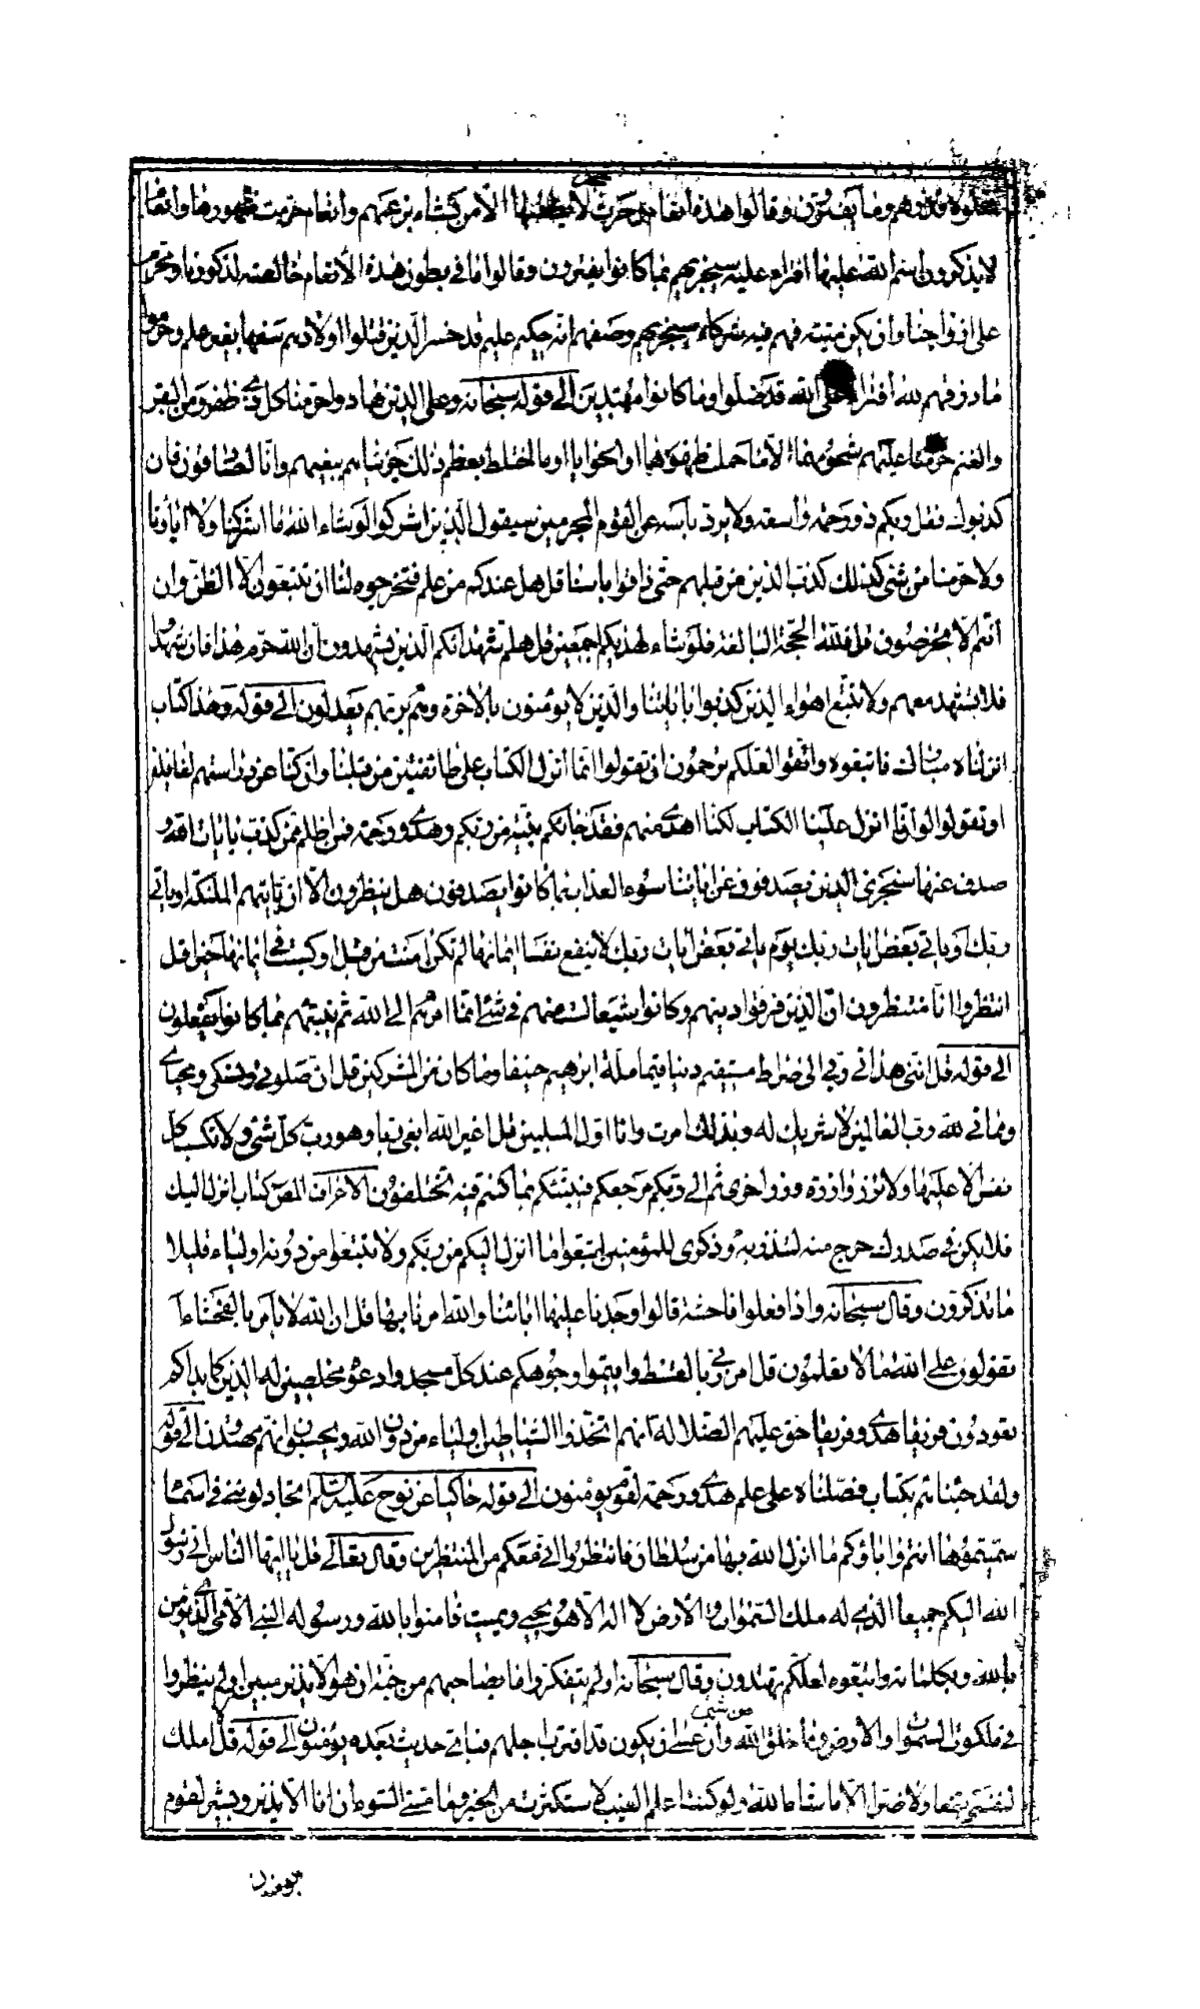 فعلوه فذرهم وما يفترون وقالوا هذه انعام وحرث حجر لا يطعمها الا من نشاء بزعمهم وانعام حرمت ظهورها وانعام
لا يذكرون اسم الله عليها افتراء عليه سيجزيهم بما كانوا يفترون وقالوا ما في بطون هذه الأنعام خالصة لذكورنا ومحرم
على ازواجنا وان يكن ميتة فهم فيه شركاء سيجزيهم وصفهم انه حكيم عليم قد خسر الذين قتلوا اولادهم سفها بغير علم وحرموا
ما رزقهم الله افتراء على الله قد ضلوا وما كانوا مهتدين الى قوله سبحانه وعلى الذين هادوا حرمنا كل ذي ظفر ومن البقر
والغنم حرمنا عليهم شحومهما الا ما حملت ظهورهما او الحوايا او ما اختلط بعظم ذلك جزيناهم ببغيهم وانا لصادقون فان
كذبوك فقل ربكم ذو رحمة واسعة ولا يرد بأسه عن القوم المجرمين سيقول الذين اشركوا لو شاء الله ما اشركنا ولا اباؤنا
ولا حرمنا من شئ كذلك كذب الذين من قبلهم حتى ذاقوا باسنا قل هل عندكم من علم فتخرجوه لنا ان تتبعون الا الظن وان
انتم الا تخرصون قل فلله الحجة البالغة فلو شاء لهديكم اجمعين قل هلم شهدائكم الذين يشهدون ان الله حرم هذا فان شهدوا
فلا تشهد معهم ولا تتبع اهواء الذين كذبوا باياتنا والذين لا يؤمنون بالاخرة وهم بربهم يعدلون الى قوله وهذا كتاب
انزلناه مبارك فاتبعوه واتقوا لعلكم ترحمون ان تقولوا انما انزل الكتاب على طائفتين من قبلنا وان كنا عن دراستهم لغافلين
او تقولوا لو انا انزل علينا الكتاب لكنا اهدى منهم فقد جائكم بينة من ربكم وهدى ورحمة فمن اظلم ممن كذب بايات الله و
صدف عنها سنجزي الذين يصدفون عن اياتنا سوء العذاب بما كانوا يصدفون هل ينظرون الا ان تاتيهم الملئكة او ياتي
ربك او ياتي بعض ايات ربك يوم ياتي بعض ايات ربك لا ينفع نفسا ايمانها لم تكن امنت من قبل او كسبت في ايمانها خيرا قل
انتظروا انا منتظرون ان الذين فرقوا دينهم وكانوا شيعا لست منهم في شئ انما امرهم الى الله ثم ينبئهم بما كانوا يفعلون
الى قوله قل انني هداني ربي الى صراط مستقيم دينا قيما ملة ابرهيم حنيفا وما كان من المشركين قل ان صلوتي ونسكي ومحياي
ومماتي لله رب العالمين لا شريك له وبذلك امرت وانا اول المسلمين قل اغير الله ابغي ربا وهو رب كل شئ ولا تكسب كل
نفس الا عليها ولا تزر وازرة وزر اخرى ثم الى ربكم مرجعكم فينبئكم بما كنتم فيه تختلفون الاعراف المص كتاب انزل اليك
فلا يكن في صدرك حرج منه لتنذر به وذكرى للمؤمنين اتبعوا ما انزل اليكم من ربكم ولا تتبعوا من دونه اولياء قليلا
ما تذكرون وقال سبحانه واذا فعلوا فاحشة قالوا وجدنا عليها ابائنا والله امرنا بها قل ان الله لا يأمر بالفحشاء أ
تقولون على الله ما لا تعلمون قل امر ربي بالقسط واقيموا وجوهكم عند كل مسجد وادعوه مخلصين له الدين كما بداكم
تعودون فريقا هدى وفريقا حق عليهم الضلالة انهم اتخذوا الشياطين اولياء من دون الله ويحسبون انهم مهتدون الى قوله
ولقد جئناهم بكتاب فصلناه على علم هدى ورحمة لقوم يؤمنون الى قوله حاكيا عن نوح عليه السلم اتجادلونني في اسماء
سميتموها انتم واباؤكم ما انزل الله بها من سلطان فانتظروا اني معكم من المنتظرين وقال تعالى قل يا ايها الناس اني رسول
الله اليكم جميعا الذي له ملك السموات والارض لا اله الا هو يحيي ويميت فامنوا بالله ورسوله النبي الامي الذي يؤمن
بالله وبكلماته واتبعوه لعلكم تهتدون وقال سبحانه اولم يتفكروا ما بصاحبهم من جنة ان هو الا نذير مبين اولم ينظروا
في ملكوت السموات والارض وما خلق الله من شئ وان عسى ان يكون قد اقترب اجلهم فباي حديث بعده يؤمنون الى قوله قل لا املك
لنفسي نفعا ولا ضرا الا ما شاء الله ولو كنت اعلم الغيب لاستكثرت من الخير وما مسني السوء ان انا الا نذير وبشير لقوم
يؤمنون